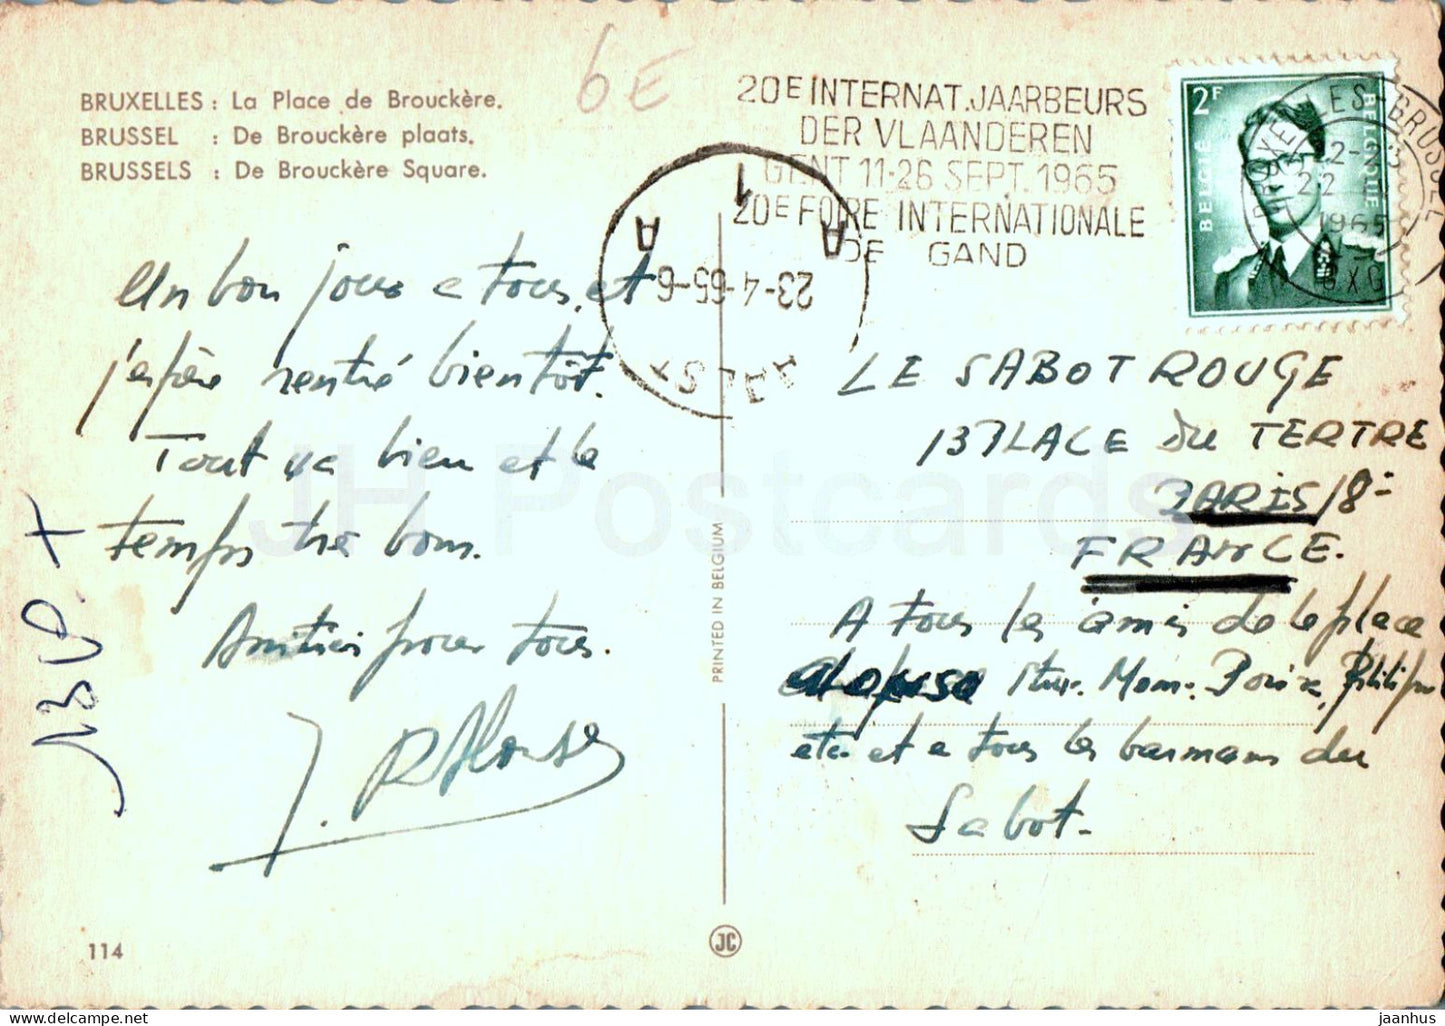 BRUXELLES : La Place de Brouckère.
BRUSSEL : De Brouckère plaats.
BRUSSELS : De Brouckère Square.
6E
20E INTERNAT. JAARBEURS
DER VLAANDEREN
GENT 11-26 SEPT. 1965
20E FOIRE INTERNATIONALE
DE GAND
2F
BELGIË
BELGIQUE
BRUXELLES-BRUSSEL
1965
BXG
A 1 A
23-4-65-6
Un bon jour a tous, et
j'espère rentré bientôt.
Tout va bien et le
temps tre bon.
Amitiés pour tous.
LE SABOT ROUGE
13 PLACE DU TERTRE
PARIS 18-
FRANCE.
A tous les amis de la place
etc. et a tous les barmans du
Sabot.
PRINTED IN BELGIUM
JC
114
JH Postcards
jaanhus @ delcampe.net